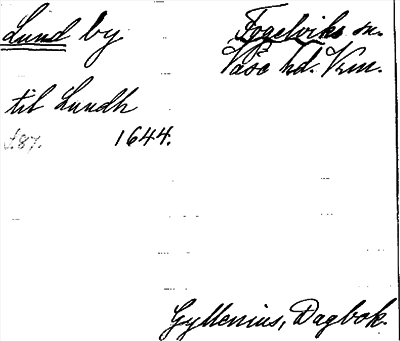 Lund by
Fogelviks sn.
Väse hd. Vrm.
til Lundh
s.87.
1644.
Gyllenius, Dagbok.